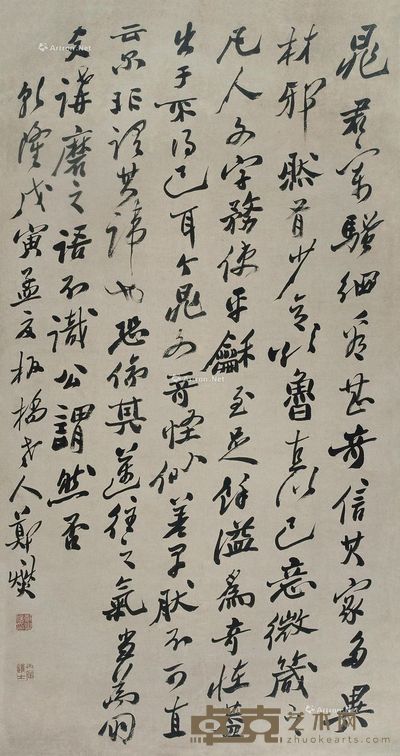 晁君寄騷細看甚奇信其家多異
材邪然有少意欲魯直以己意微箴之
凡人文字務使平龢至足餘溢為奇怪蓋
出于不得已耳今晁文奇怪似差早狀不可直
云尔非謂其諱也恐傷其邁往之氣當為朋
友講磨之語不識公謂然否
乾隆戊寅孟夏板橋老人鄭燮
Artron.Net
卓克艺术网
zhuokearts.com